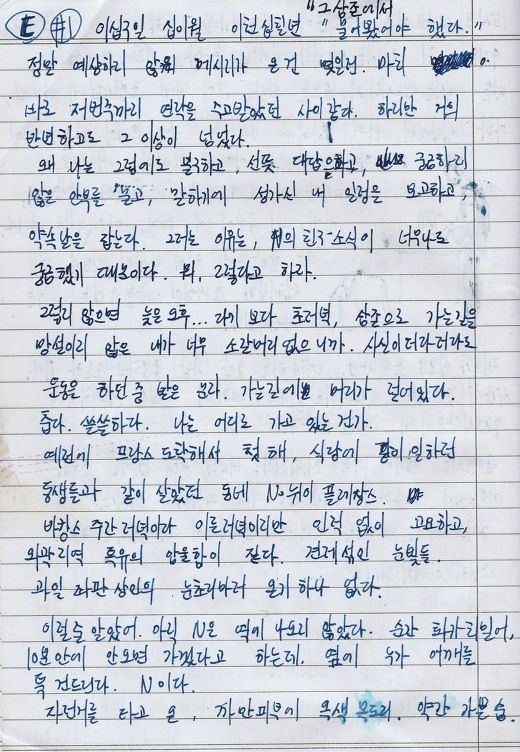 "그 상준에서
Ⓔ #1 이십구일 십이월 이천십칠년 "물어봤어야 했다."
정말 예상하리 않게 메시지가 온 건 몇일런. 마치
바로 저번주까지 연락을 주고받았던 사이같다. 하지만 거의
반년하고도 그 이상이 넘었다.
왜 나는 그럼에도 불구하고, 선뜻 대답을하고, 궁금하리
않은 안부를 묻고, 말하기에 성가신 내 일정을 보고하고,
약속날을 잡는다. 그러는 이유는, N의 최근 소식이 너무나도
궁금했기 때문이다. 뭐, 그렇다고 하자.
그렇지 않으면 늦은 오후... 라기 보다 초저녁, 상준으로 가는길을
망설이지 않은 내가 너무 소갈머리 없으니까. 사실이
운동을 하던 중 받은 문자. 가는길에 머리가 얼어있다.
춥다. 쓸쓸하다. 나는 어디로 가고 있는건가.
예전에 프랑스 도착해서 첫 해, 식당에 같이 일하던
동생들과 같이 살았던 동네 N 뉘이 플레장스.
바캉스 주간 저녁이라 이른저녁이지만 인적 없이 고요하고,
외곽지역 특유의 암울함이 짙다. 견제 섞인 눈빛들.
과일 좌판 상인의 눈초리마저 온기 하나 없다.
이럴줄 알았어. 아직 N은 역에 나오지 않았다. 순간 화가치밀어,
10분안에 안오면 가겠다고 하는데. 옆에 누가 어깨를
툭 건드리다. N이다.
자전거를 타고 온, 까만피부에 옥색 목도리. 약간 가쁜 숨.